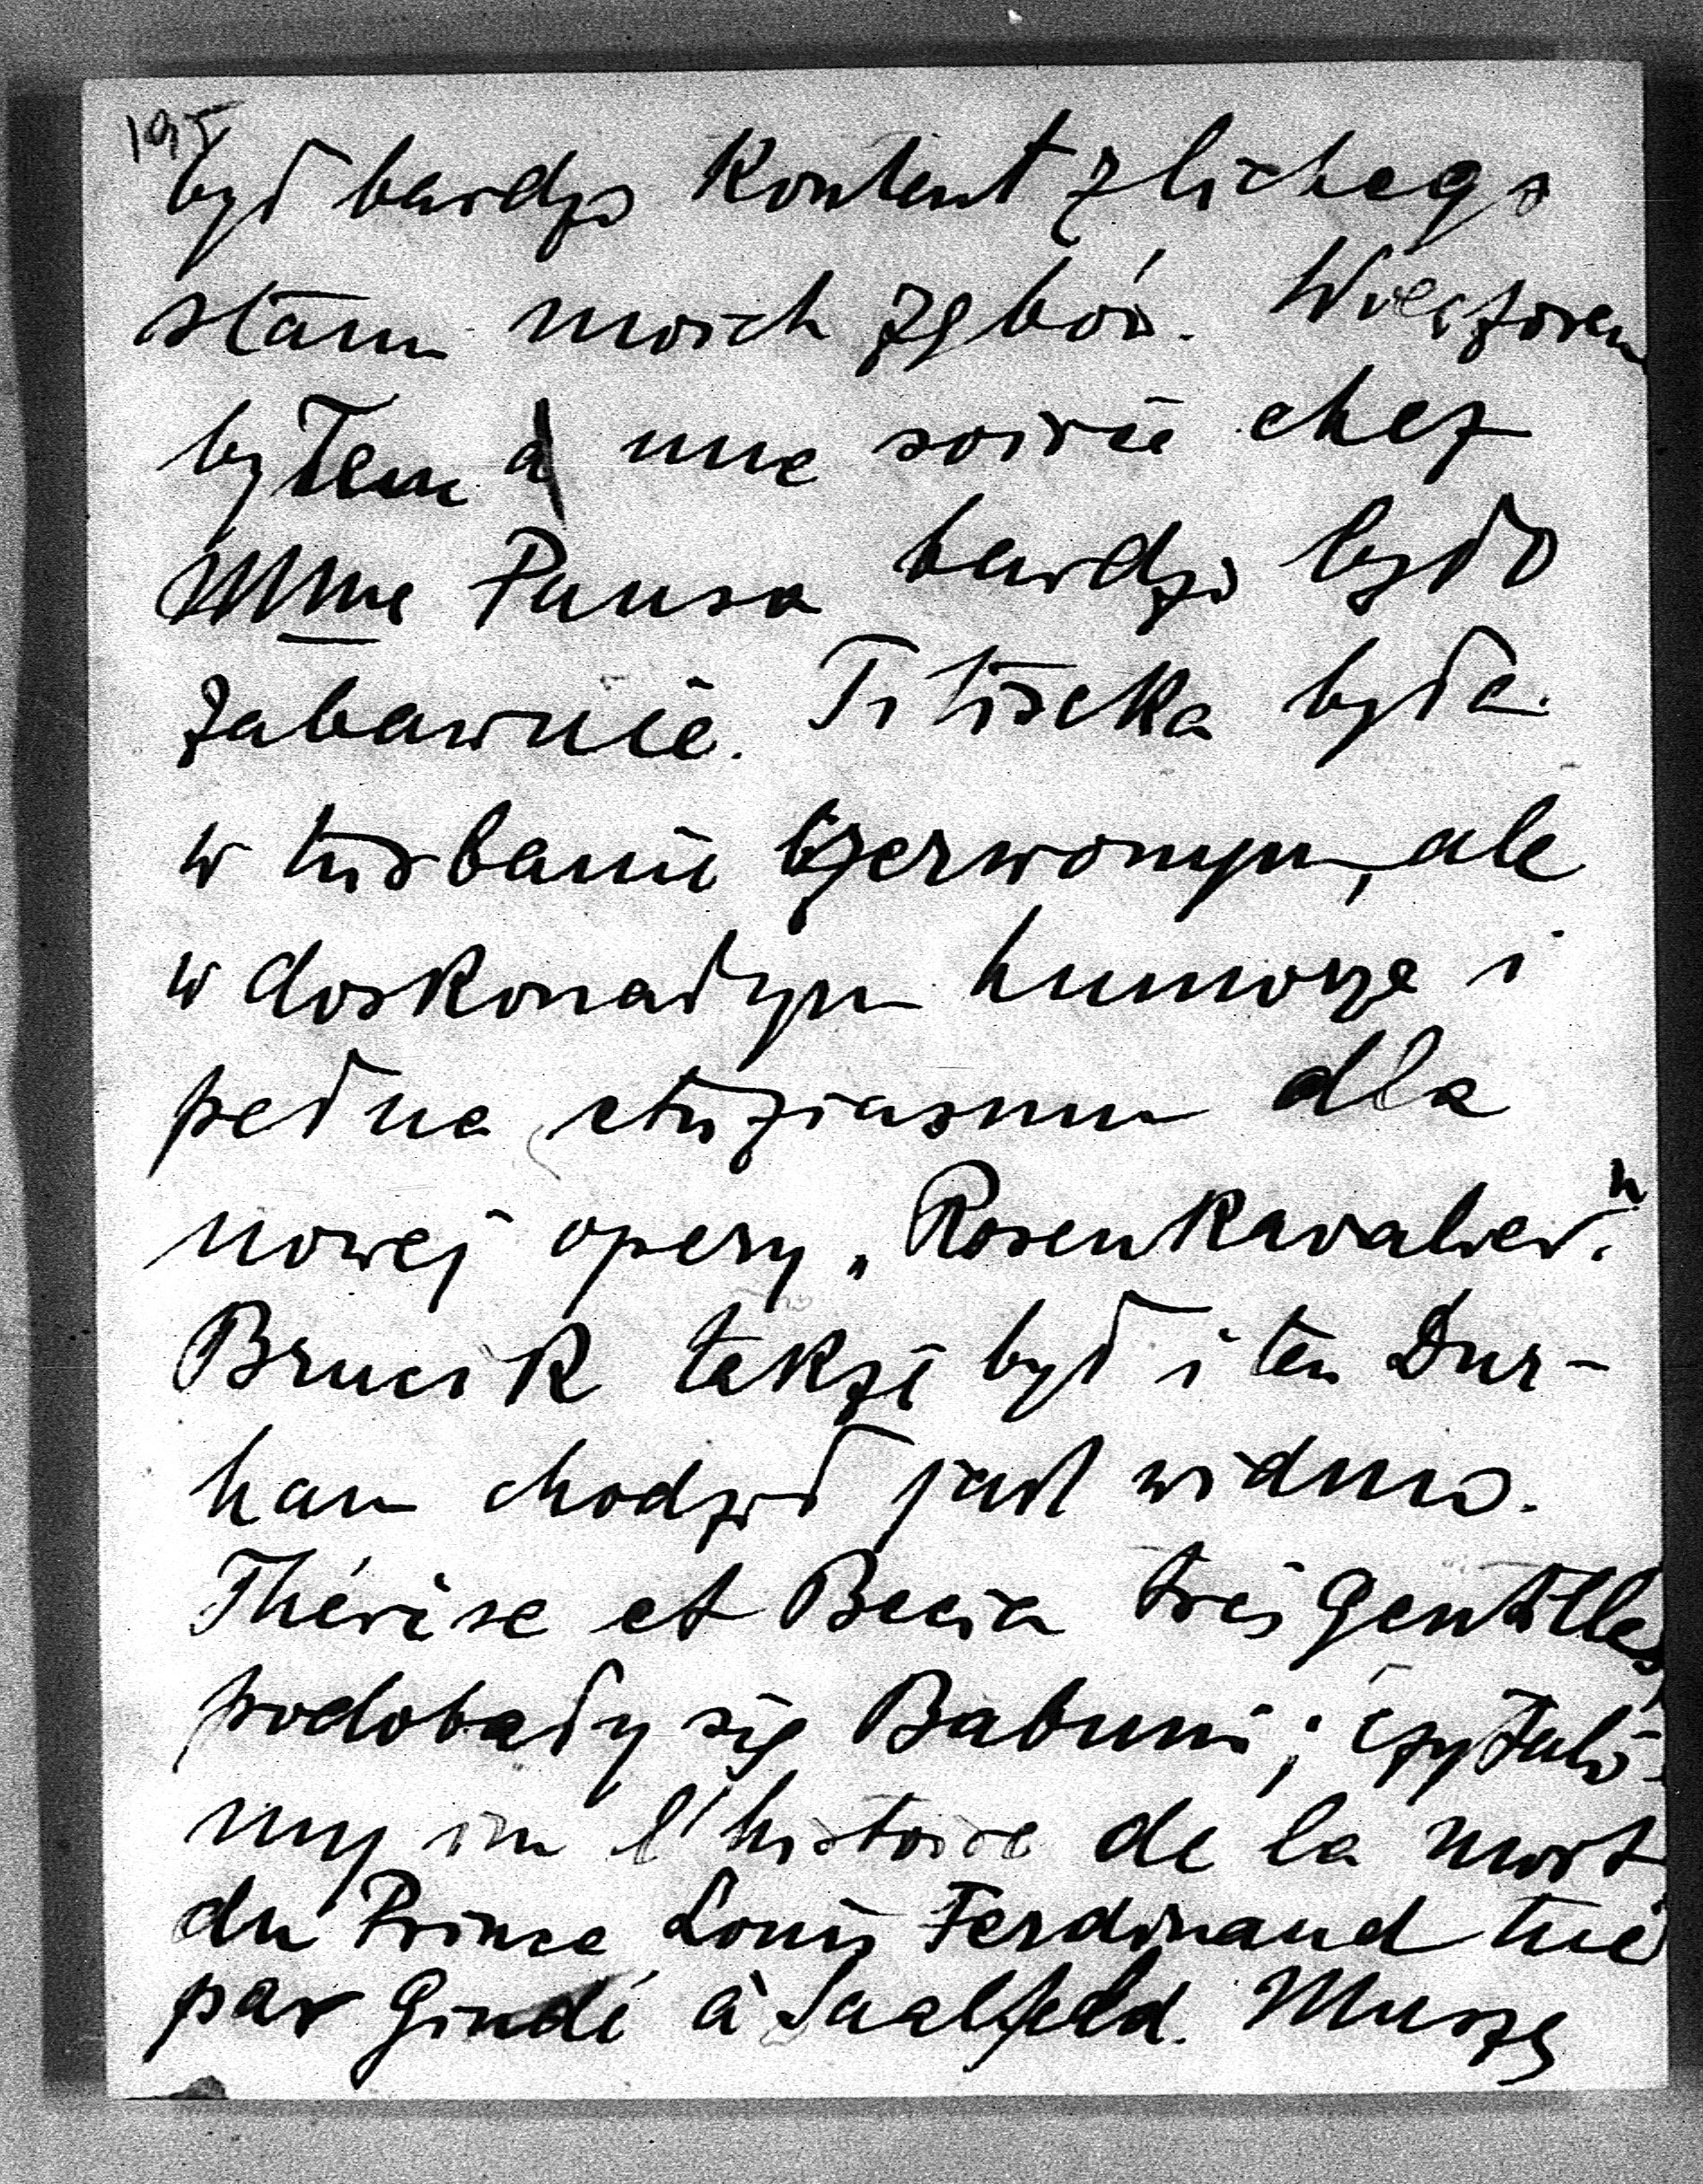 195
był bardzo kontent z lichego
stanu moich zębów. Wieczorem
byłem à une soirée chez
Mme Pansa bardzo było
zabawnie. Titischka była
w turbanie czerwonym, ale
w doskonałym humorze i
pełna etuziasmu dla
nowej opery „Rosenkavalier“.
Brucik także był i ten Dur-
ham chodził jak widmo.
Thérèse et Becia très gentilles,
podobały się Babuni; czytaliś-
my im l'histoire de la mort
du Prince Louis Ferdinand tué
par Gindé à Saalfeld. Muszę